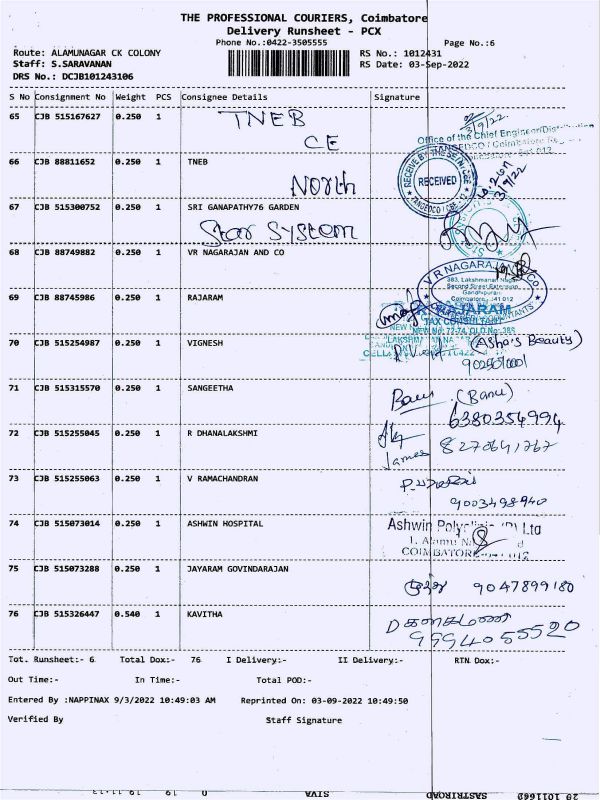 THE PROFESSIONAL COURIERS, Coimbatore
Delivery Runsheet - PCX
Phone No.:0422-3505555
Page No.:6
Route: ALAMUNAGAR CK COLONY
RS No.: 1012431
Staff: S.SARAVANAN
RS Date: 03-Sep-2022
DRS No.: DCJB101243106
S No Consignment No Weight PCS Consignee Details Signature
65 CJB 515167627 0.250 1 TNEB
CE
3/9/22
Office of the Chief Engineer/Distribution
TANGEDCO / Coimbatore
66 CJB 88811652 0.250 1 TNEB
North
RECEIVED
3/9/22
67 CJB 515300752 0.250 1 SRI GANAPATHY76 GARDEN
Star System
68 CJB 88749882 0.250 1 VR NAGARAJAN AND CO
VR NAGARAJAN & Co
383, Lakshmanan Nagar
Second Street Extension
Gandhipuram
Coimbatore - 641 012
69 CJB 88745986 0.250 1 RAJARAM
RAJARAM
TAX CONSULTANT
70 CJB 515254987 0.250 1 VIGNESH
(Asha's Beauty)
71 CJB 515315570 0.250 1 SANGEETHA
(Banu)
6380354994
72 CJB 515255045 0.250 1 R DHANALAKSHMI
James 8270641767
73 CJB 515255063 0.250 1 V RAMACHANDRAN
9003498940
74 CJB 515073014 0.250 1 ASHWIN HOSPITAL
Ashwin Polyclinic (P) Ltd
COIMBATORE
75 CJB 515073288 0.250 1 JAYARAM GOVINDARAJAN
9047899180
76 CJB 515326447 0.540 1 KAVITHA
9994055520
Tot. Runsheet:- 6 Total Dox:- 76 I Delivery:- II Delivery:- RTN Dox:-
Out Time:- In Time:- Total POD:-
Entered By :NAPPINAX 9/3/2022 10:49:03 AM Reprinted On: 03-09-2022 10:49:50
Verified By Staff Signature